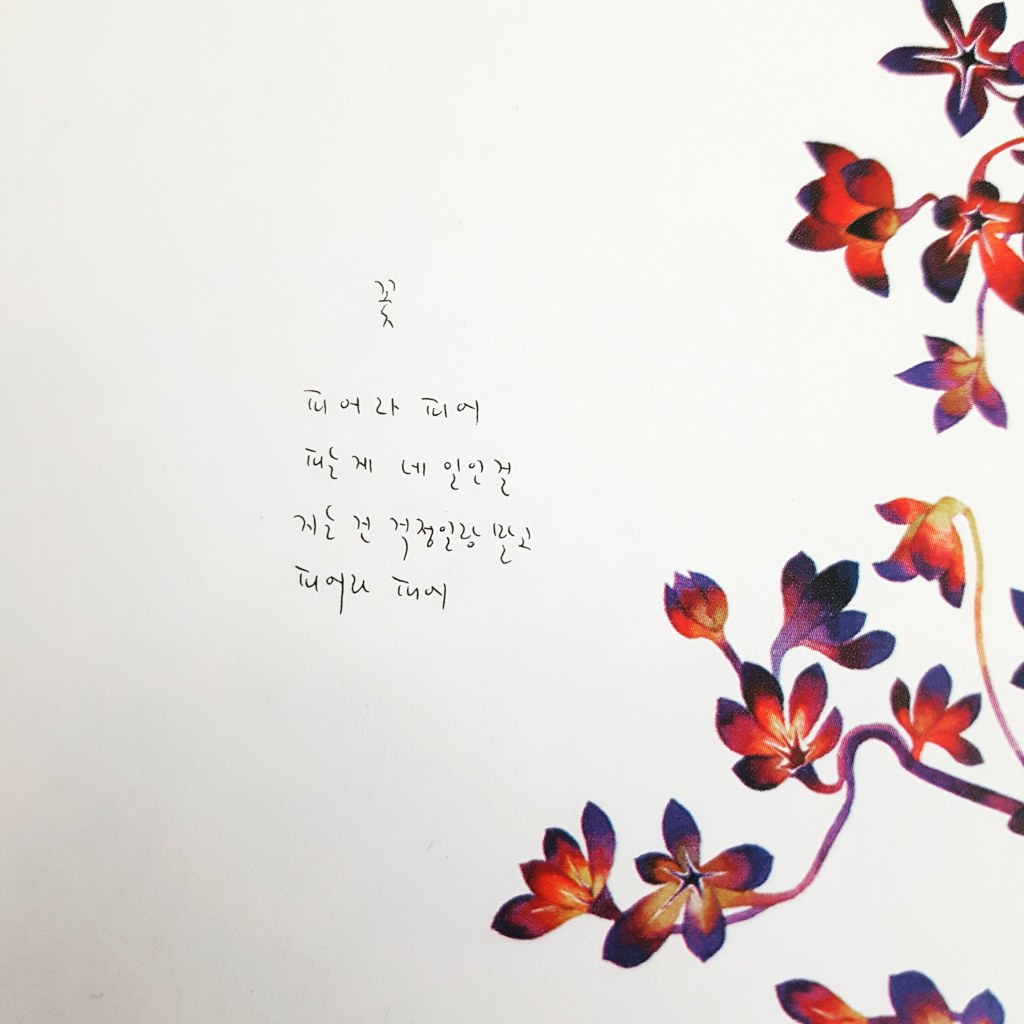 꽃
피어라 피어
피는게 네 일인걸
지는 건 걱정일랑 말고
피어라 피어